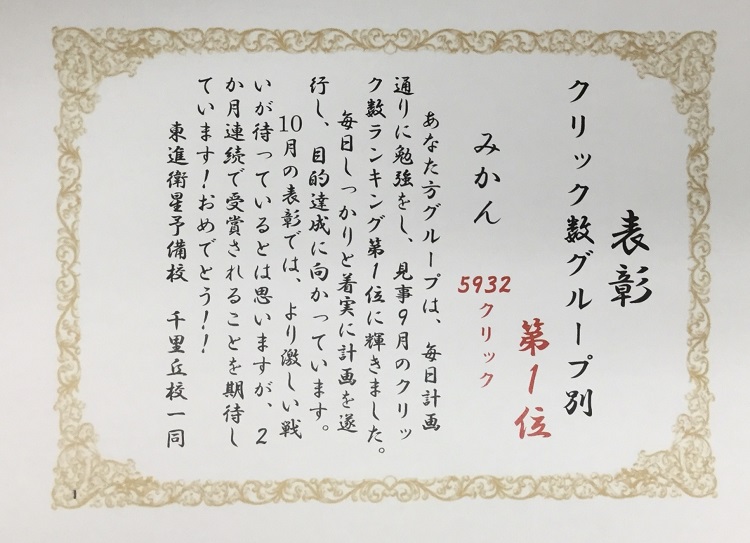 表彰
クリック数グループ別
第1位
みかん
5932クリック
あなた方グループは、毎日計画
通りに勉強をし、見事9月のクリッ
ク数ランキング第1位に輝きました。
毎日しっかりと着実に計画を遂
行し、目的達成に向かっています。
10月の表彰では、より激しい戦
いが待っているとは思いますが、2
か月連続で受賞されることを期待し
ています!おめでとう!!
東進衛星予備校 千里丘校一同
1